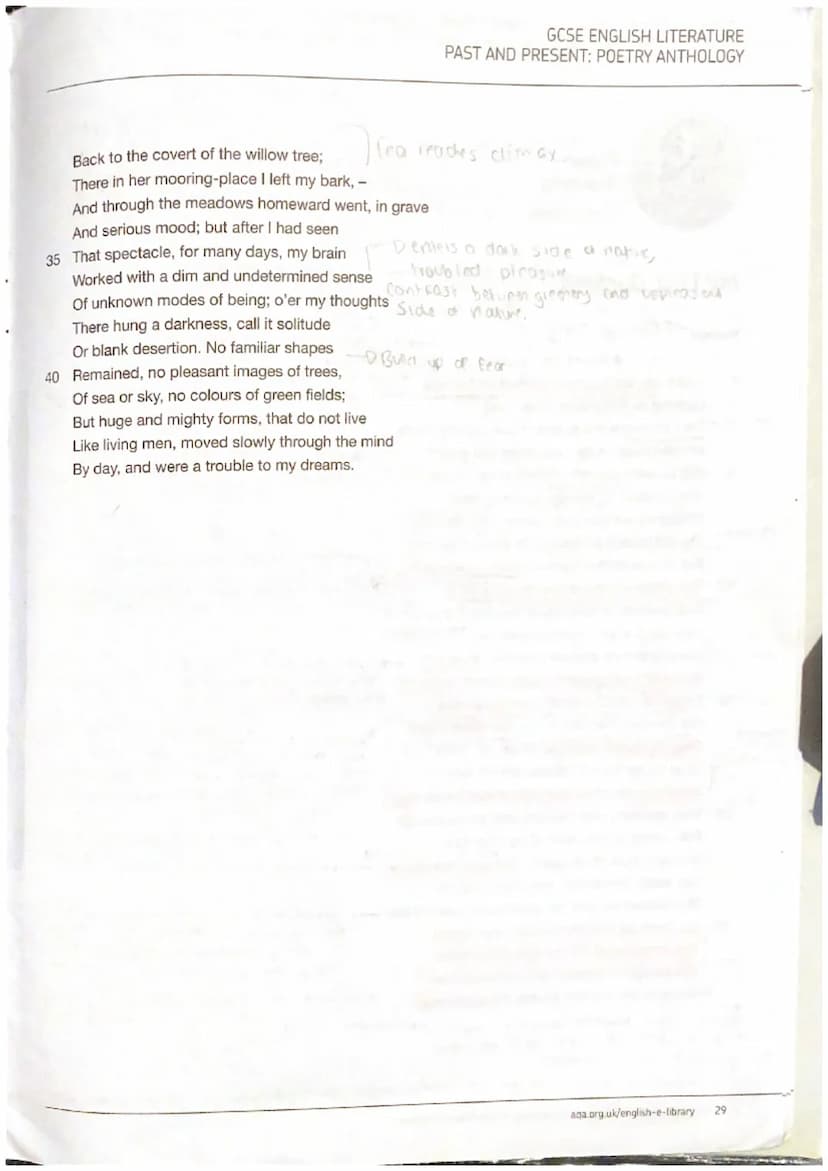 GCSE ENGLISH LITERATURE
PAST AND PRESENT: POETRY ANTHOLOGY
Back to the covert of the willow tree;
reaches climax
There in her mooring-place I left my bark, –
And through the meadows homeward went, in grave
And serious mood; but after I had seen
35 That spectacle, for many days, my brain
a dark side of nature,
Worked with a dim and undetermined sense
troubled pleasure
Of unknown modes of being; o'er my thoughts
contrast between and
side of nature.
There hung a darkness, call it solitude
Or blank desertion. No familiar shapes
Build up of fear
40 Remained, no pleasant images of trees,
Of sea or sky, no colours of green fields;
But huge and mighty forms, that do not live
Like living men, moved slowly through the mind
By day, and were a trouble to my dreams.
aqa.org.uk/english-e-library 29